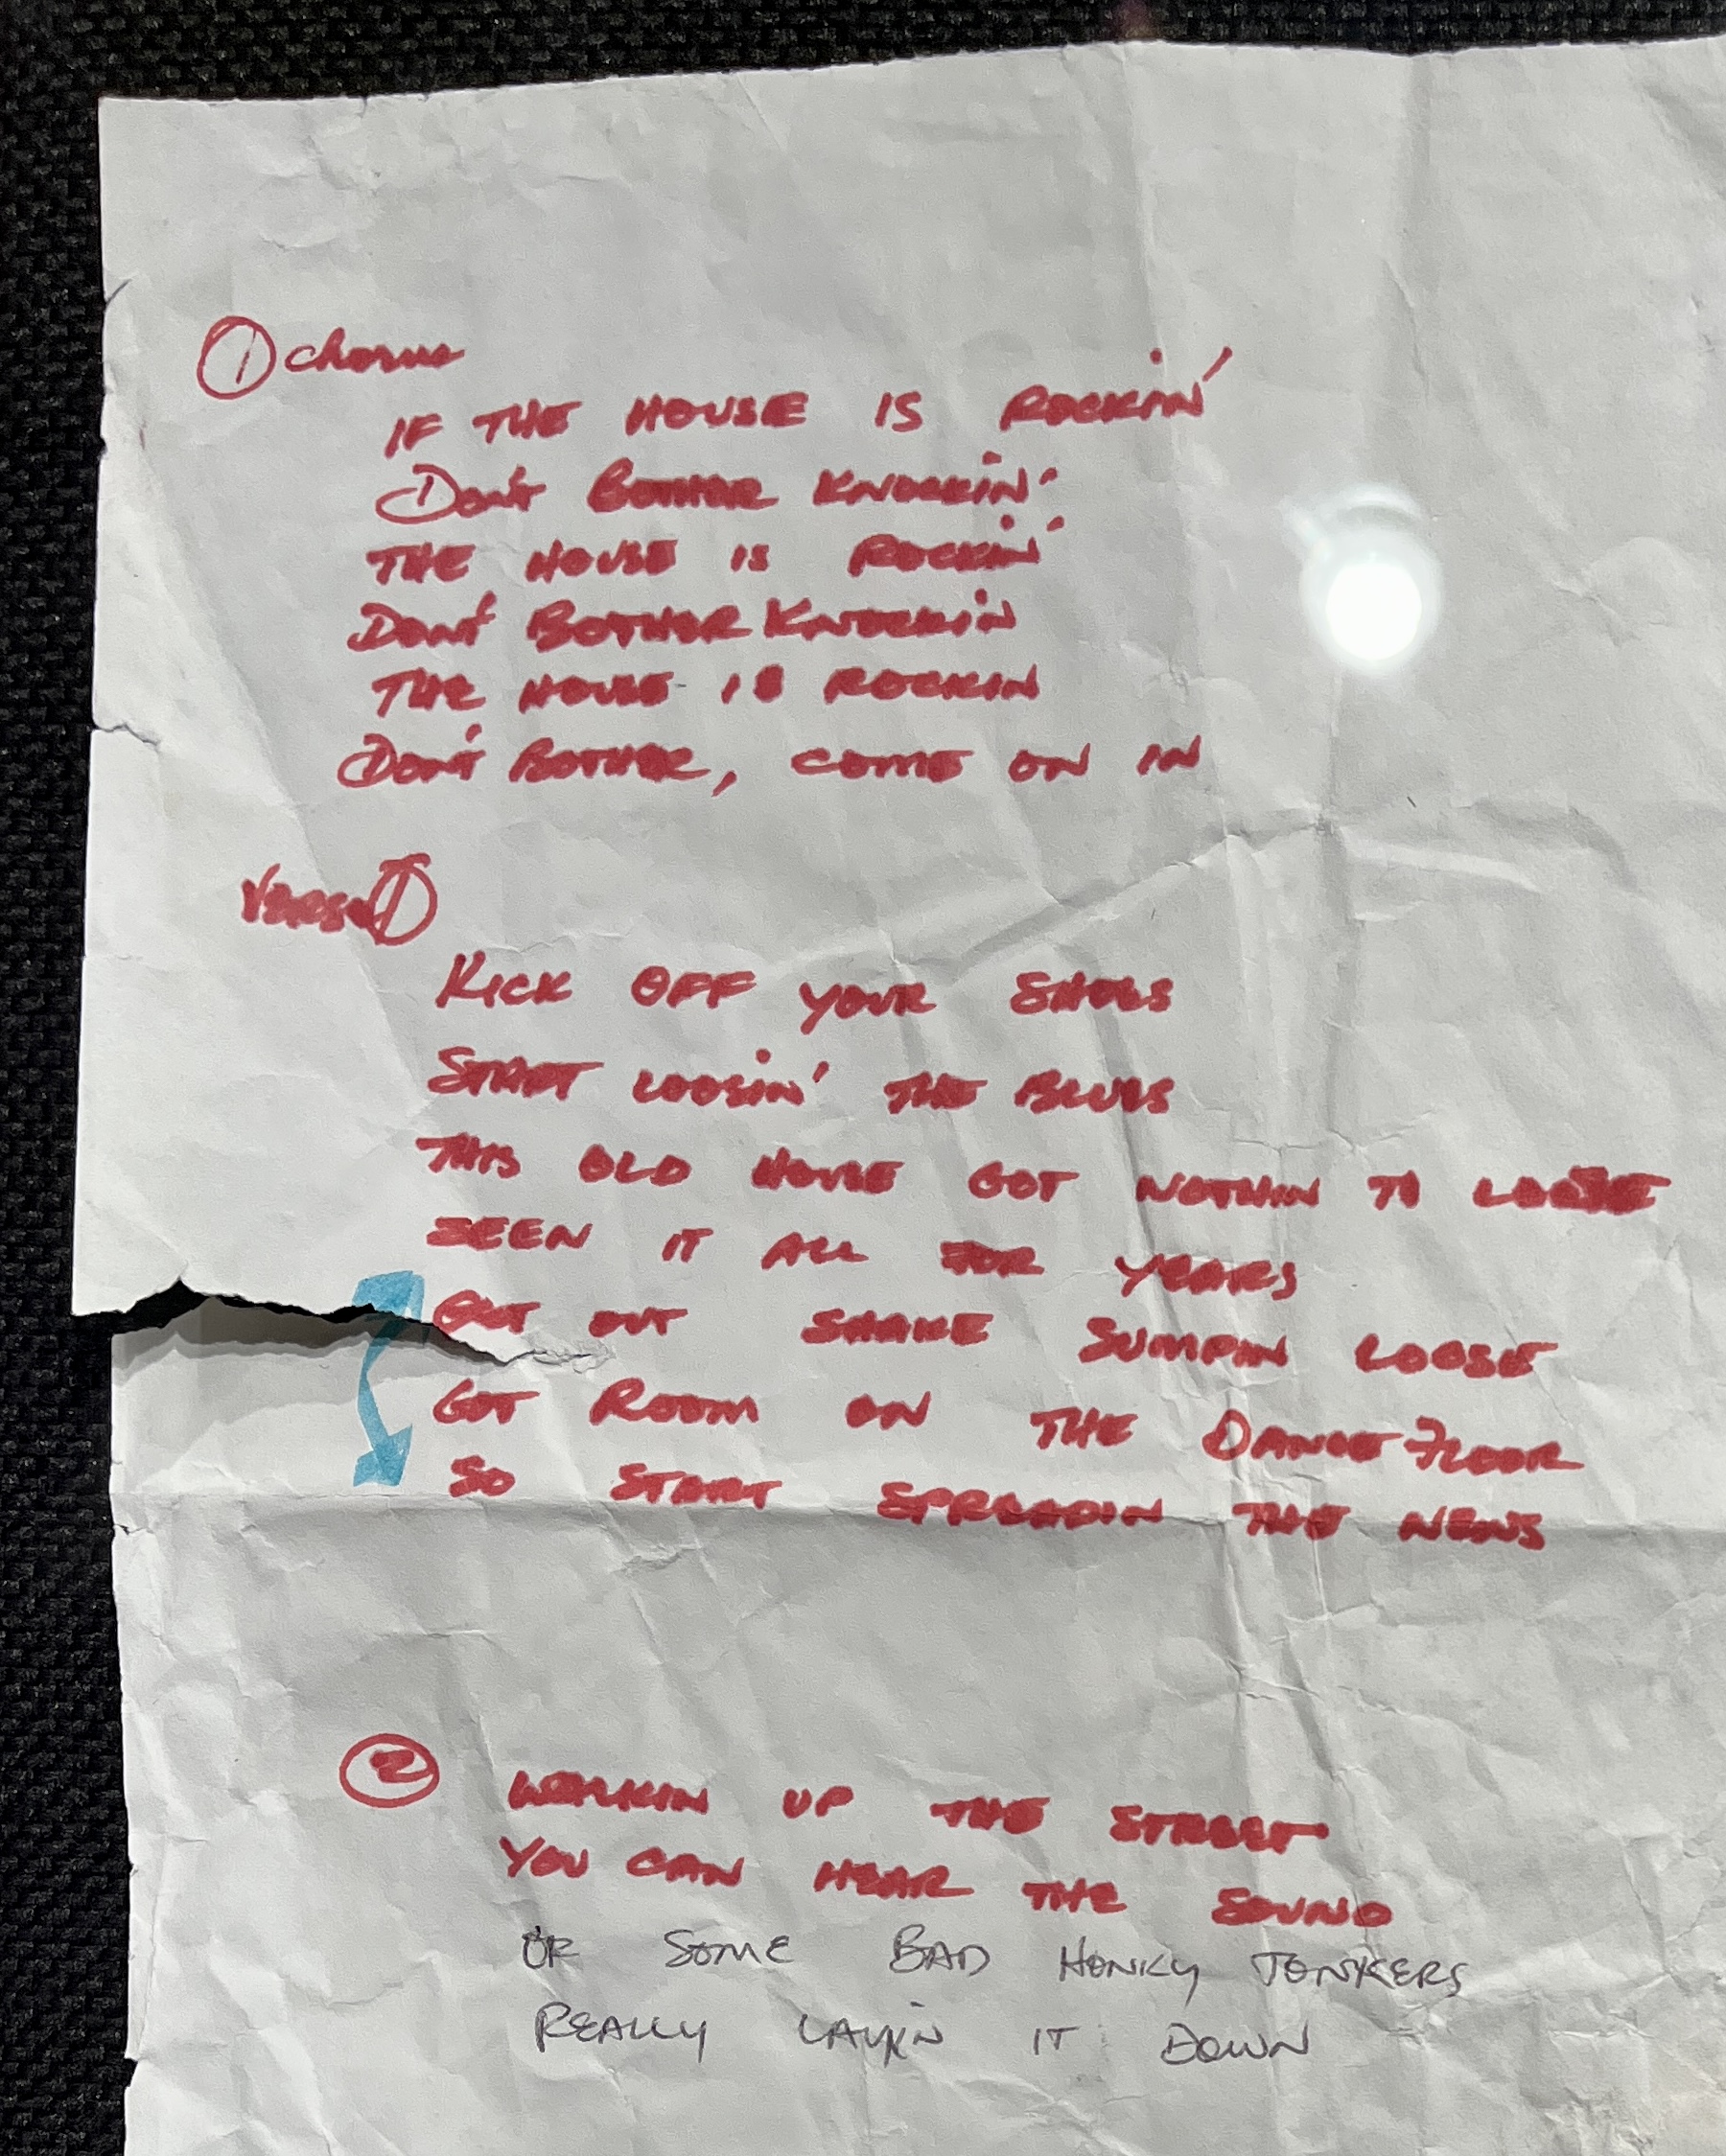 ① chorus
IF THE HOUSE IS ROCKIN'
Don't BOTHER KNOCKIN'
THE HOUSE IS ROCKIN'
Don't BOTHER KNOCKIN
THE HOUSE IS ROCKIN
Don't BOTHER, COME ON IN
VERSE ①
KICK OFF YOUR SHOES
START LOOSIN' THE BLUES
THIS OLD HOUSE GOT NOTHIN TO LOOSE
SEEN IT ALL FOR YEARS
GET OUT SHAKE SUMPIN LOOSE
GOT ROOM ON THE DANCE FLOOR
SO START SPREADIN THE NEWS
② WALKIN UP THE STREET
YOU CAN HEAR THE SOUND
OR SOME BAD HONKY TONKERS
REALLY LAYIN IT DOWN